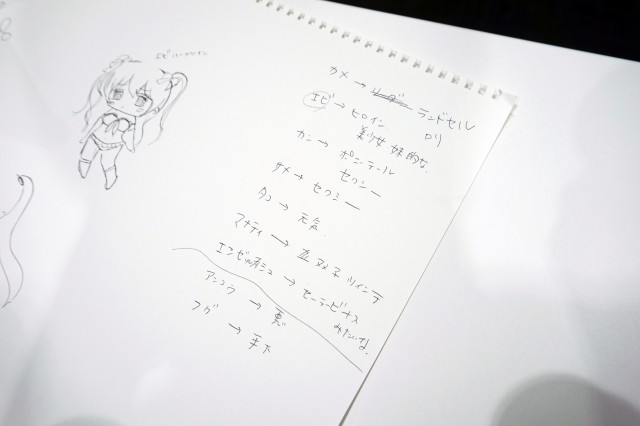 エビ ヒロイン
カメ → ランドセル
ロリ
エビ → ヒロイン
美少女 妹的な
カニ → ポニーテール
セクシー
サメ → セクシー
タコ → 元気
マナティ → ツインテ
エンゼルフィッシュ → セーラービーナス
みたいな
アンコウ → 裏
フグ → 手下